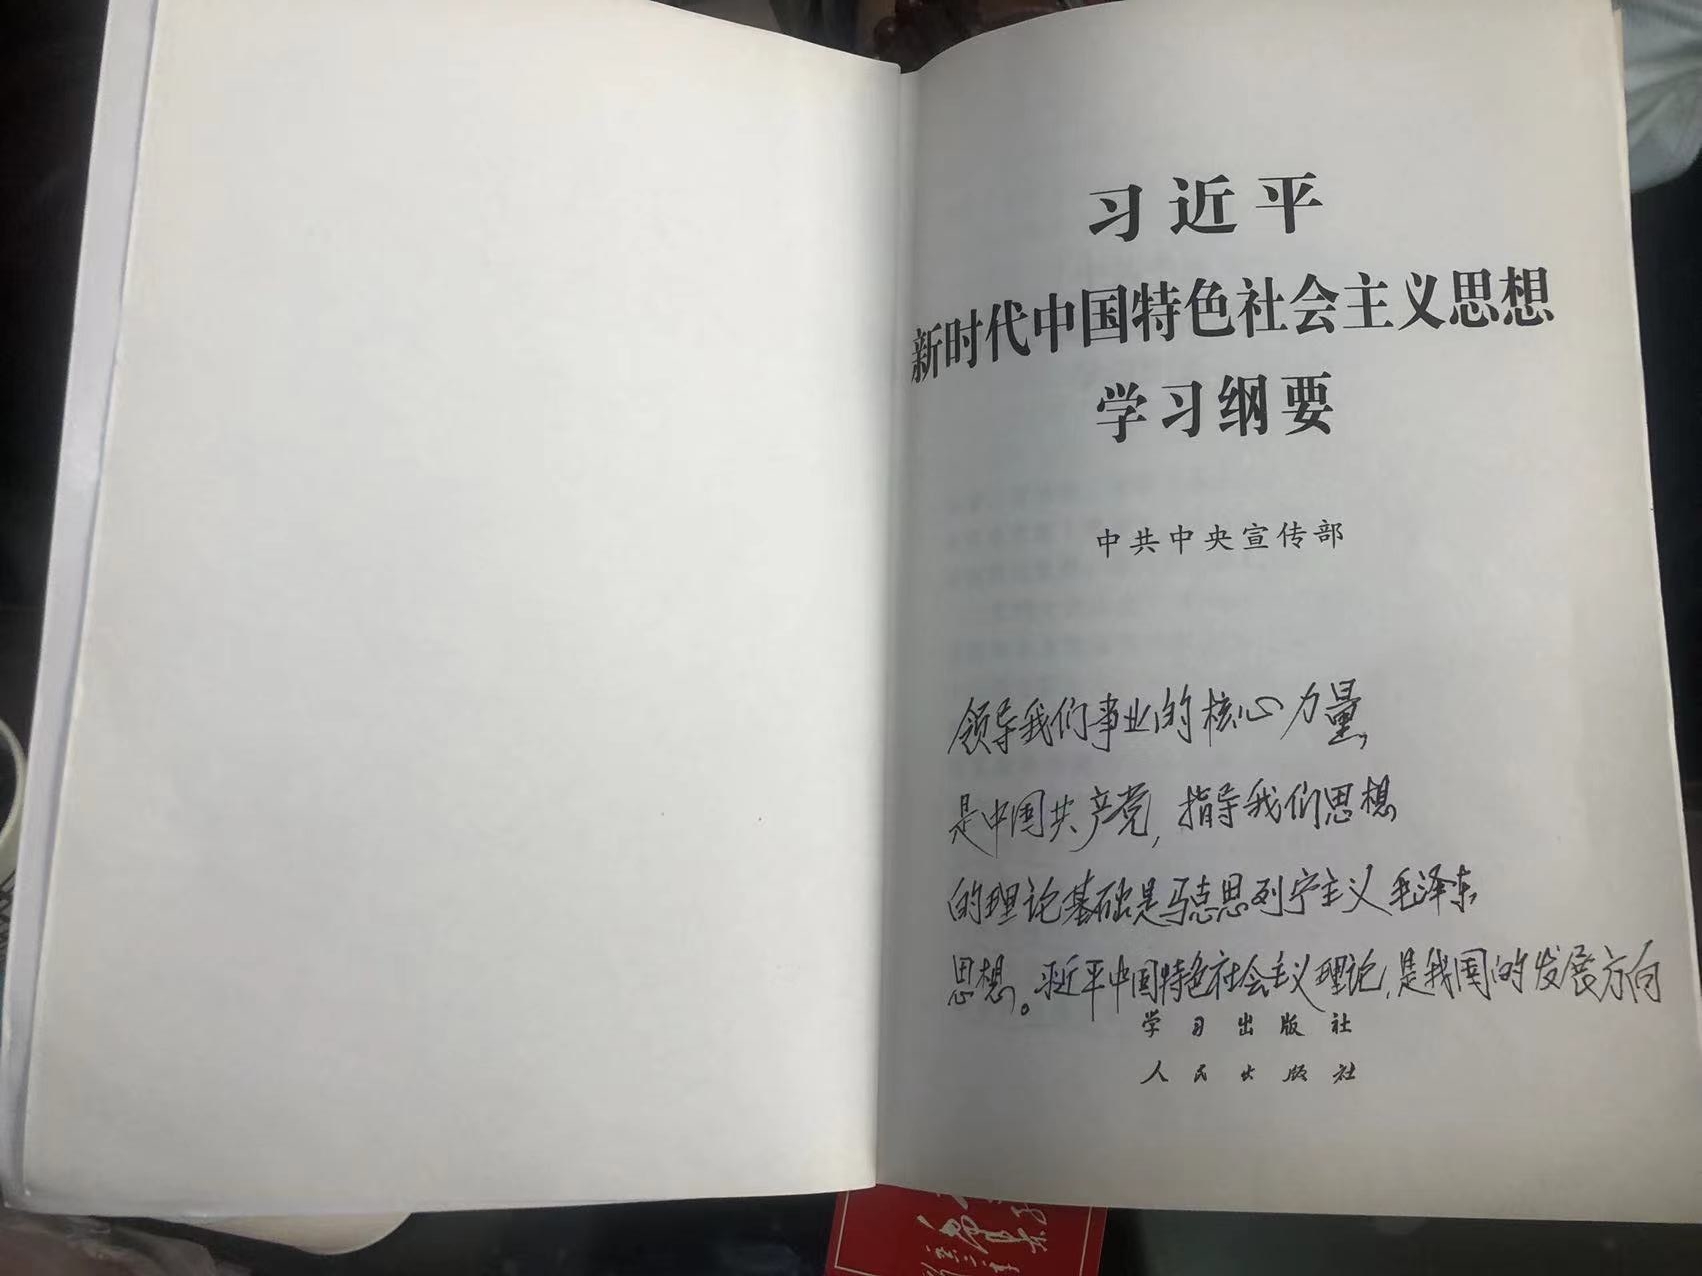 习近平
新时代中国特色社会主义思想
学习纲要
中共中央宣传部
领导我们事业的核心力量,
是中国共产党,指导我们思想
的理论基础是马克思列宁主义毛泽东
思想。习近平中国特色社会主义理论,是我国的发展方向
学习出版社
人民出版社